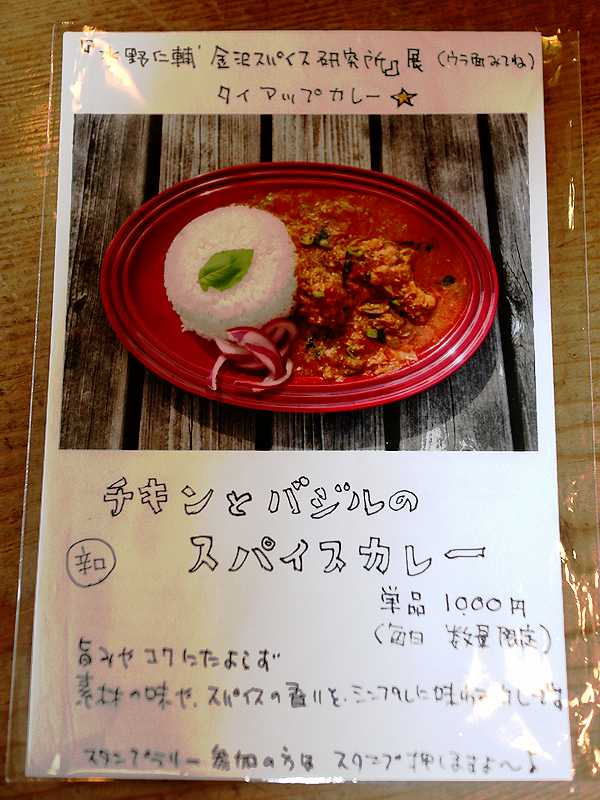 『水野仁輔 金沢スパイス研究所』展 (ウラ面みてね)
タイアップカレー☆
チキンとバジルの
スパイスカレー
辛口
単品 1000円
(毎日 数量限定)
旨みやコクにたよらず
素材の味や、スパイスの香りを、ミニマルに味わう カレーです
スタンプラリー 参加の方は スタンプ押しますよ〜♪